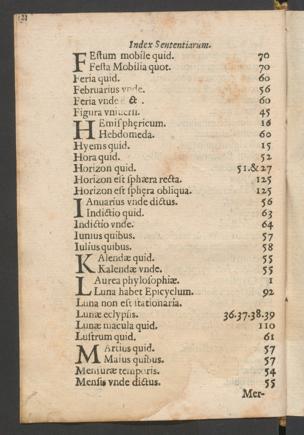 Index Sententiarum.
FEstum mobile quid. 70
Festa Mobilia quot. 70
Feria quid. 60
Februarius vnde. 56
Feria vnde & . 60
Figura 45
HEmisphęricum. 16
Hebdomeda. 60
Hyems quid. 15
Hora quid. 52
Horizon quid. 51.&27
Horizon est sphæra recta. 125
Horizon est sphęra obliqua. 125
IAnuarius vnde dictus. 56
Indictio quid. 63
Indictio vnde. 64
Iunius quibus. 57
Iulius quibus. 58
KAlendæ quid. 55
Kalendæ vnde. 55
LAurea phylosophiæ. 1
Luna habet Epicyclum. 92
Luna non est stationaria.
Lunæ eclypsis. 36.37.38.39
Lunæ macula quid. 110
Lustrum quid. 61
MArtius quid. 57
Maius quibus. 57
Mensuræ temporis. 54
Mensis vnde dictus. 55
Mer-